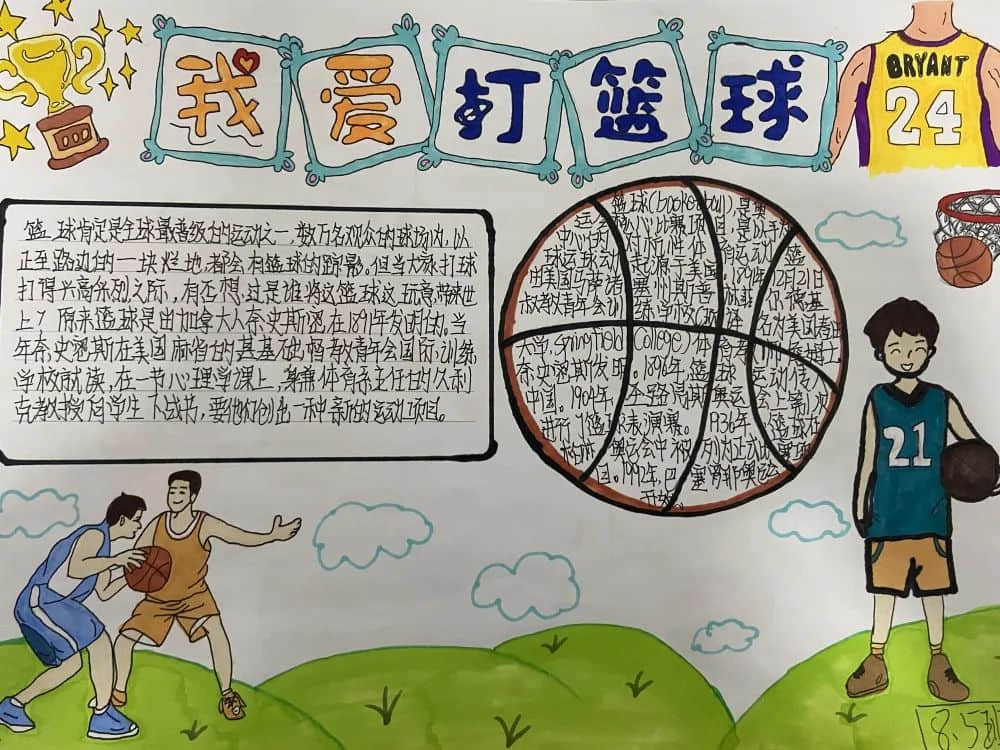 我爱打篮球
BRYANT
24
篮球肯定是全球最普级的运动之一，数万名观众的球场内，以
正至路边的一块烂地，都会有篮球的踪影。但当大家打球
打得兴高采烈之际，有否想过是谁将这篮球这玩意带来世
上？原来篮球是由加拿大人奈史斯密在1891年发明的。当
年奈史密斯在美国麻省的基基础督教青年会国际训练
学校就读，在一节心理学课上，兼体育系主任的久利
克教授向学生下战书，要他们创出一种新的运动项目。
是奥
运会核心比赛项目，是以手为
中心的对抗性体育运动
球运动起源于美国。1891年12月21日
由美国马萨诸塞州斯普
督教青年会训练学校
大学，Springfield College）体育
奈史密斯发明。1896年，篮球运动传入
中国。1904年，圣路易斯奥运会上第1次
进行了篮球表演赛。1936年，篮球在
奥运会中被列为正式比赛项
目。1992年，巴塞罗那奥运会
开始
21
8.5